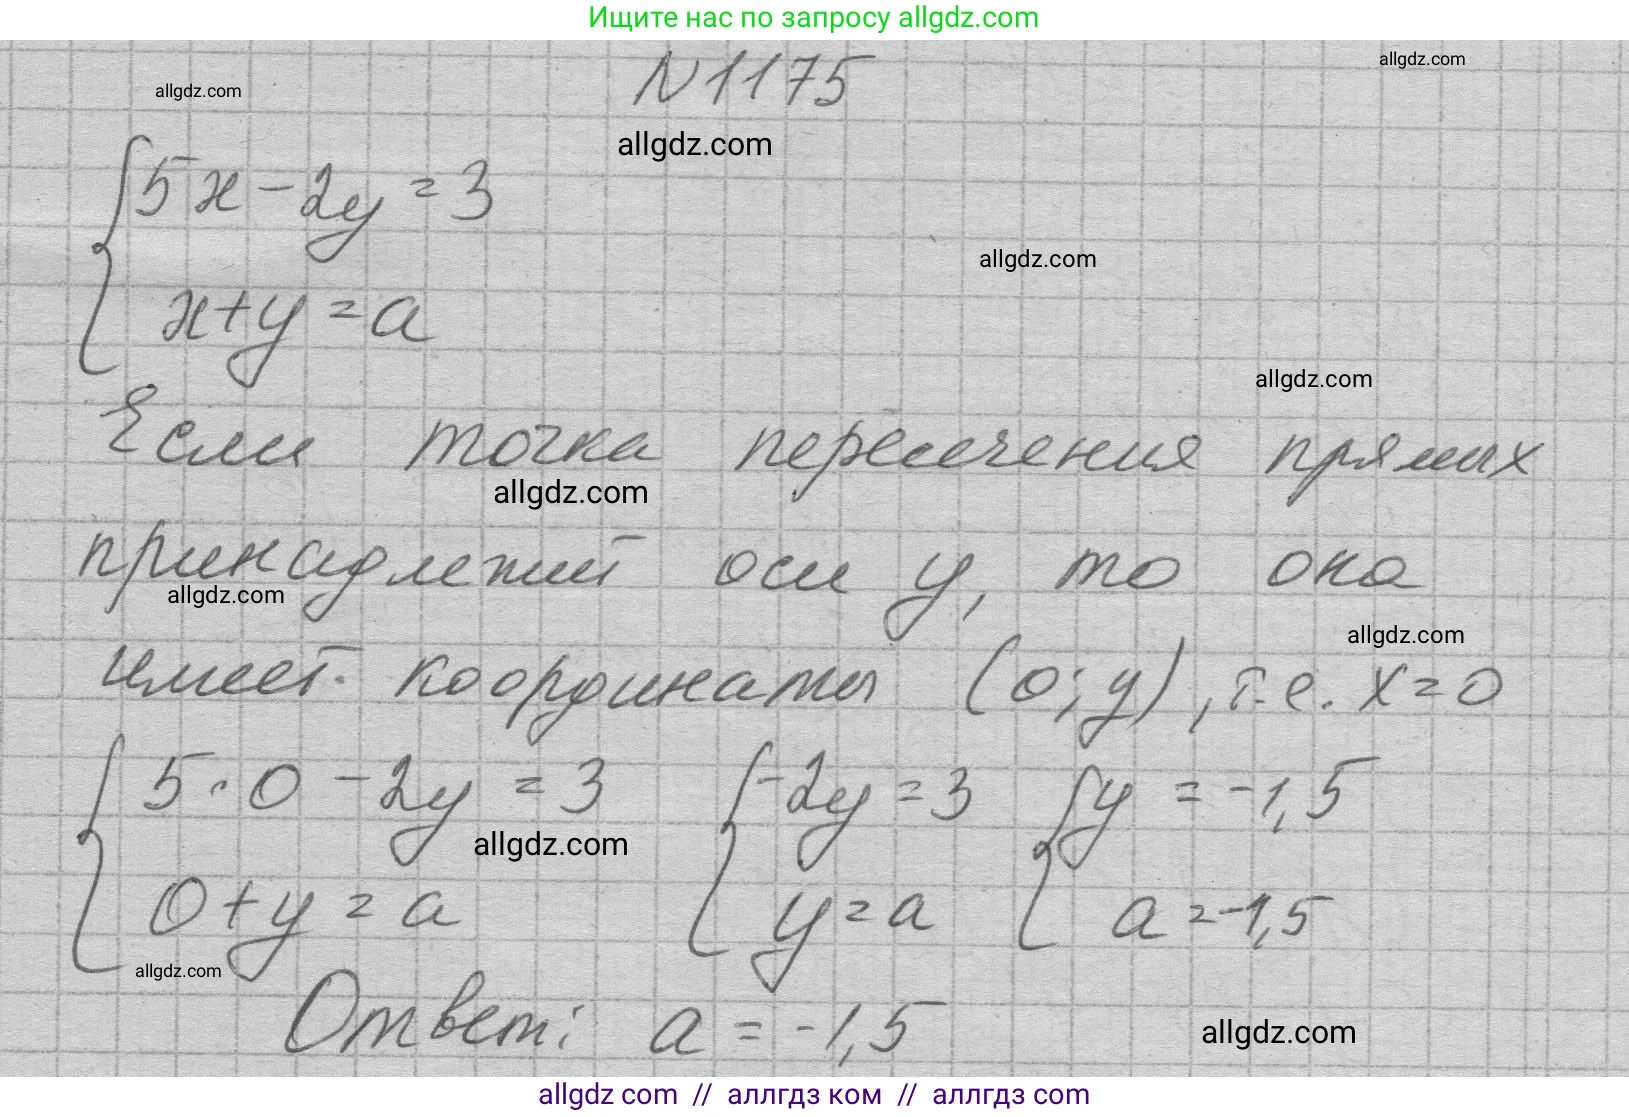 Ищите нас по запросу allgdz.com
N1175
allgdz.com
allgdz.com
allgdz.com
5x-2y=3
allgdz.com
x+y=a
allgdz.com
Если точка пересечения прямых
allgdz.com
принадлежит оси y, то она
allgdz.com
allgdz.com
имеет координаты (0;y), т.е. x=0
5·0-2y=3 -2y=3 y=-1,5
allgdz.com
0+y=a y=a a=-1,5
allgdz.com
Ответ: a=-1,5
allgdz.com
allgdz com // аллгдз ком // allgdz com